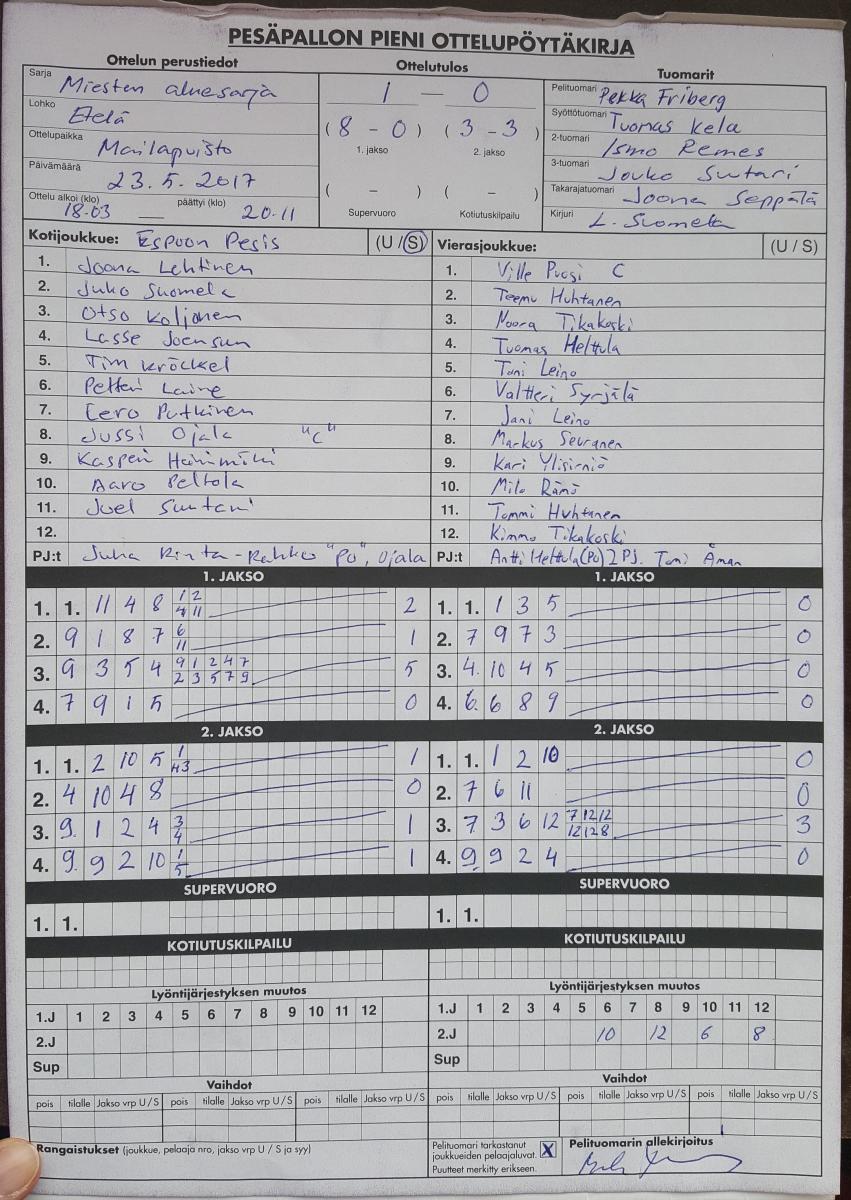 PESÄPALLON PIENI OTTELUPÖYTÄKIRJA
Ottelun perustiedot
Sarja Miesten aluesarja
Lohko Etelä
Ottelupaikka Mailapuisto
Päivämäärä 23.5.2017
Ottelu alkoi (klo) 18.03 päättyi (klo) 20.11
Ottelutulos
1 — 0
(8 - 0) (3 - 3)
1. jakso 2. jakso
( - ) ( - )
Supervuoro Kotiutuskilpailu
Tuomarit
Pelituomari Pekka Friberg
Syöttötuomari Tuomas Kela
2-tuomari Ismo Remes
3-tuomari Jouko Suutari
Takarajatuomari Joona Seppälä
Kirjuri L. Suomela
Kotijoukkue: Espoon Pesis (U / S)
1. Joona Lehtinen
2. Juko Suomela
3. Otso Koljonen
4. Lasse Joensuu
5. Tim Kröckel
6. Petteri Laine
7. Eero Putkinen
8. Jussi Ojala "C"
9. Kasperi
10. Aaro Peltola
11. Joel
12.
PJ:t Juha Rinta-Rahko "PU", Ojala
Vierasjoukkue: (U / S)
1. Ville C
2. Teemu Huhtanen
3. Noora Tikakoski
4. Tuomas Helttula
5. Toni Leino
6. Valtteri Syrjälä
7. Jani Leino
8. Markus Seuranen
9. Kari Ylisirniö
10. Milo Rämö
11. Tommi Huhtanen
12. Kimmo Tikakoski
PJ:t Antti Helttula (PU) 2PJ. Toni Åman
1. JAKSO
1. 1. 11 4 8 1 2 4 11 2
2. 9 1 8 7 6 11 1
3. 9 3 5 4 9 1 2 4 7 2 3 5 7 9 5
4. 7 9 1 5 0
1. JAKSO
1. 1. 1 3 5 0
2. 7 9 7 3 0
3. 4. 10 4 5 0
4. 6. 6 8 9 0
2. JAKSO
1. 1. 2 10 5 1 4 3 1
2. 4 10 4 8 0
3. 9. 1 2 4 3 4 1
4. 9. 9 2 10 1 5 1
2. JAKSO
1. 1. 1 2 10 0
2. 7 6 11 0
3. 7 3 6 12 7 12 12 12 12 8 3
4. 9. 9 2 4 0
SUPERVUORO
1. 1.
SUPERVUORO
1. 1.
KOTIUTUSKILPAILU
KOTIUTUSKILPAILU
Lyöntijärjestyksen muutos
1.J 1 2 3 4 5 6 7 8 9 10 11 12
2.J
Sup
Lyöntijärjestyksen muutos
1.J 1 2 3 4 5 6 7 8 9 10 11 12
2.J 10 12 6 8
Sup
Vaihdot
pois tilalle Jakso vrp U / S pois tilalle Jakso vrp U / S pois tilalle Jakso vrp U / S
Vaihdot
pois tilalle Jakso vrp U / S pois tilalle Jakso vrp U / S pois tilalle Jakso vrp U / S
Rangaistukset (joukkue, pelaaja nro, jakso vrp U / S ja syy)
Pelituomari tarkastanut
joukkueiden pelaajaluvat. X
Puutteet merkitty erikseen.
Pelituomarin allekirjoitus